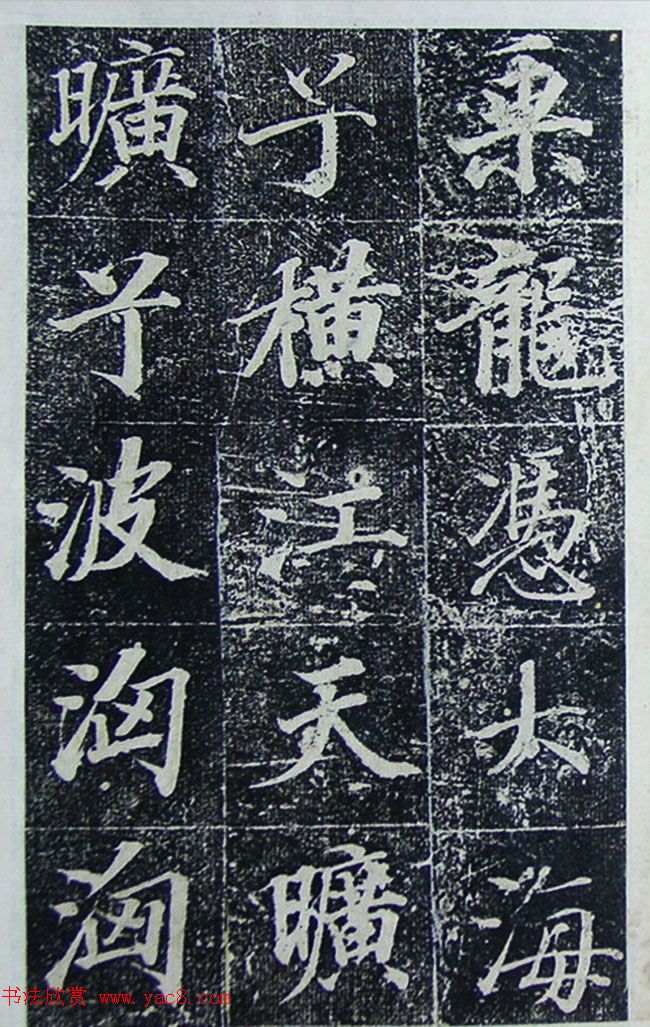 乗龍憑大海
兮橫江天曠
曠兮波洶洶
书法欣赏 www.yac8.com